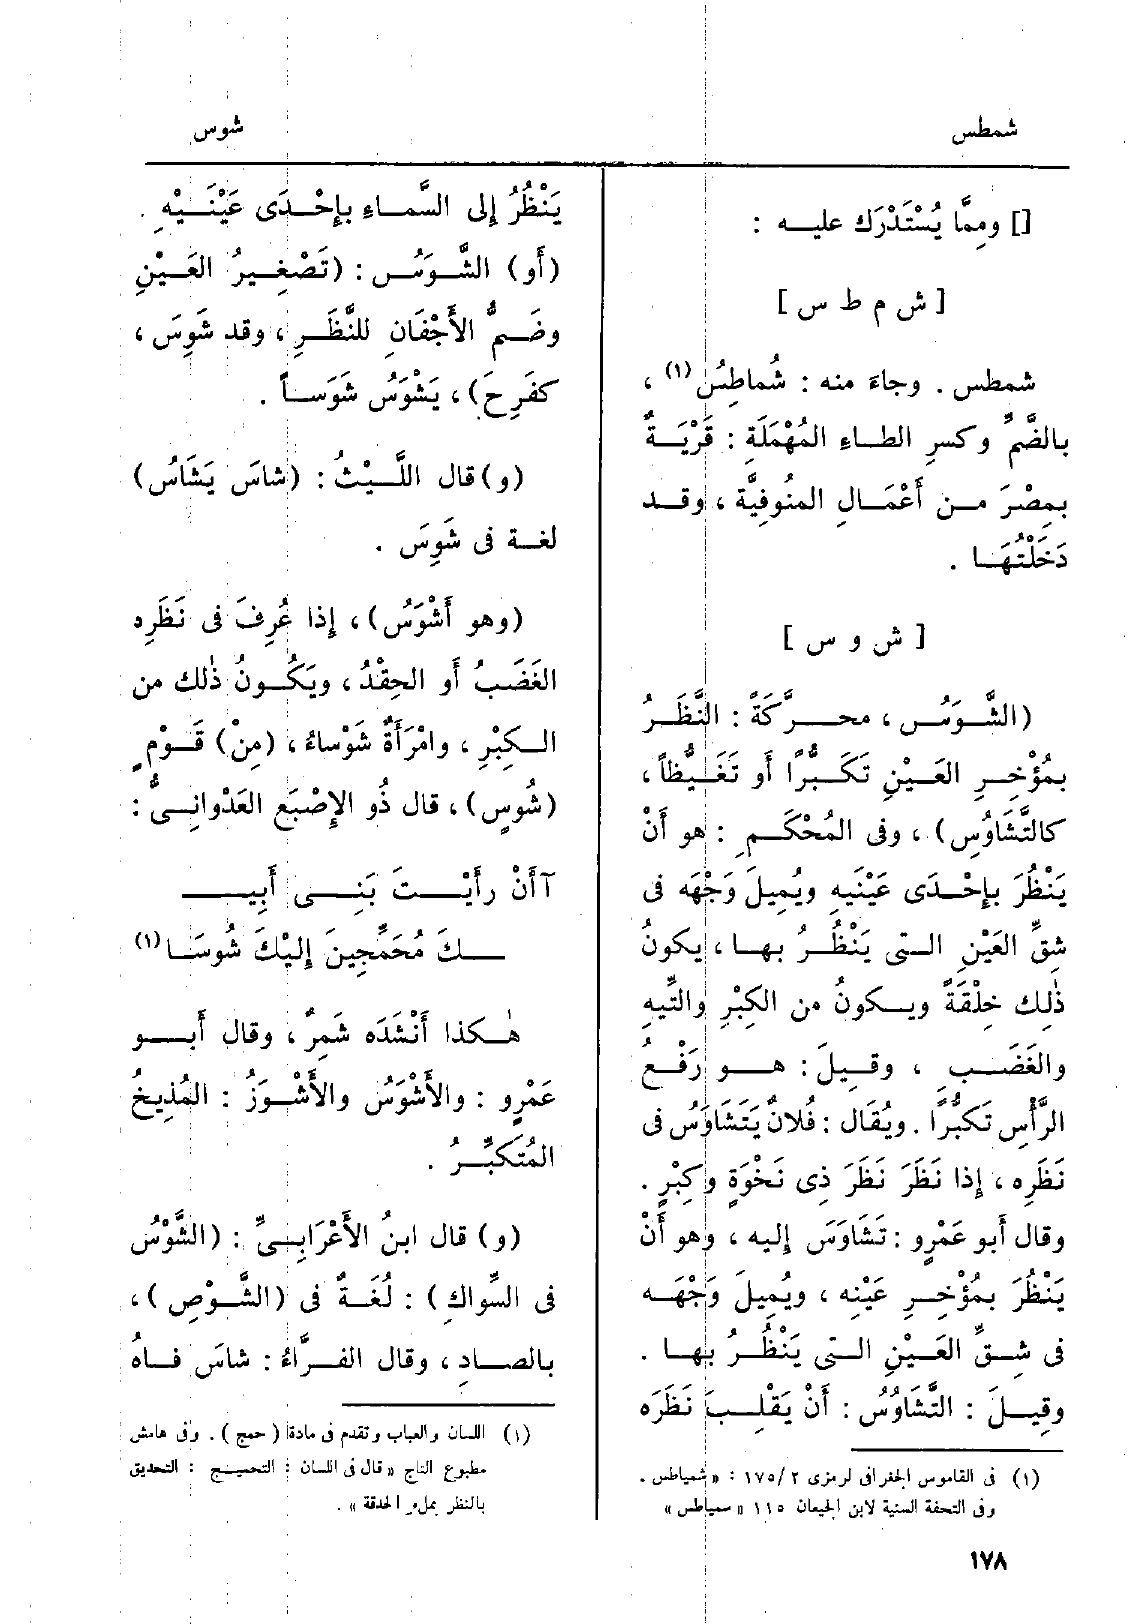 شمطس
شوس
[] ومِمَّا يُسْتَدْرَك عليه :
[ ش م ط س ]
شمطس . وجاءَ منه : شُماطِسُ(١) ،
بالضَّمِّ وكسرِ الطاءِ المُهْمَلَةِ : قَرْيَةٌ
بمِصْرَ من أَعْمَالِ المنُوفِيَّة ، وقد
دَخَلْتُهَا .
[ ش و س ]
(الشَّوَسُ ، محرَّكَةً : النَّظَرُ
بمُؤْخِرِ العَيْنِ تَكَبُّرًا أَو تَغَيُّظاً ،
كالتَّشَاوُسِ) ، وفى المُحْكَمِ : هو أَنْ
يَنْظُرَ بإِحْدَى عَيْنَيه ويُمِيلَ وَجْهَه فى
شِقِّ العَيْنِ التى يَنْظُرُ بها ، يكونُ
ذٰلِك خِلْقَةً ويكونُ من الكِبْرِ والتِّيهِ
والغَضَبِ ، وقِيلَ : هو رَفْعُ
الرَّأْسِ تَكَبُّرًا . ويُقَال : فُلانٌ يَتَشَاوَسُ فى
نَظَرِه ، إِذا نَظَرَ نَظَرَ ذِى نَخْوَةٍ وكِبْرٍ .
وقال أَبو عَمْرٍو : تَشَاوَسَ إِليه ، وهو أَنْ
يَنْظُرَ بمُؤْخِرِ عَيْنِه ، ويُمِيلَ وَجْهَه
فى شِقِّ العَيْنِ التى يَنْظُرُ بها .
وقِيلَ : التَّشَاوُسُ : أَنْ يَقْلِبَ نَظَرَه
(١) فى القاموس الجغرافى لرمزى ٢ /١٧٥ : «شمياطس .
وفى التحفة السنية لابن الجيعان ١١٥ « سمياطس »
١٧٨
يَنْظُرُ إِلى السَّماءِ بإِحْدَى عَيْنَيْهِ .
(أَو) الشَّوَسُ : (تَصْغِيرُ العَيْنِ
وضَمُّ الأَجْفَانِ للنَّظَرِ ، وقد شَوِسَ ،
كفَرِحَ) ، يَشْوَسُ شَوَساً .
(و) قال اللَّيْثُ : (شاسَ يَشَاسُ)
لغة فى شَوِسَ .
(وهو أَشْوَسُ) ، إِذا عُرِفَ فى نَظَرِه
الغَضَبُ أَو الحِقْدُ ، ويَكُونُ ذٰلك من
الكِبْرِ ، وامْرَأَةٌ شَوْساءُ ، (مِنْ) قَوْمٍ
(شُوسٍ) ، قال ذُو الإِصْبَعِ العَدْوانِىُّ :
آأَنْ رأَيْتَ بَنِى أَبِيـ
ـكَ مُحَمِّجِينَ إِلَيْكَ شُوسَا(١)
هٰكذا أَنْشَدَه شَمِرٌ ، وقال أَبو
عَمْرٍو : والأَشْوَسُ والأَشْوَزُ : المُذِيخُ
المُتَكَبِّرُ .
(و) قال ابنُ الأَعْرَابِىِّ : (الشَّوْسُ
فى السِّواكِ) : لُغَةٌ فى (الشَّوْصِ) ،
بالصادِ ، وقال الفَرَّاءُ : شاسَ فاهُ
(١) اللسان والعباب وتقدم فى مادة ( حمج ) . وفى هامش
مطبوع التاج « قال فى اللسان : التحميج : التحديق
بالنظر بملء الحدقة » .